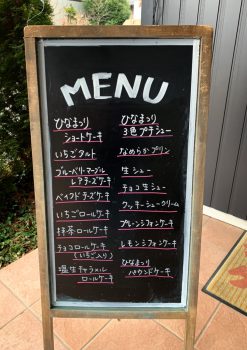 MENU
ひなまつり
ショートケーキ
いちごタルト
ブルーベリーマーブル
レアチーズケーキ
ベイクドチーズケーキ
いちごロールケーキ
抹茶ロールケーキ
チョコロールケーキ
(いちご入り)
塩生キャラメル
ロールケーキ
ひなまつり
3色プチシュー
なめらかプリン
生シュー
チョコ生シュー
クッキーシュークリーム
プレーンシフォンケーキ
レモンシフォンケーキ
ひなまつり
パウンドケーキ